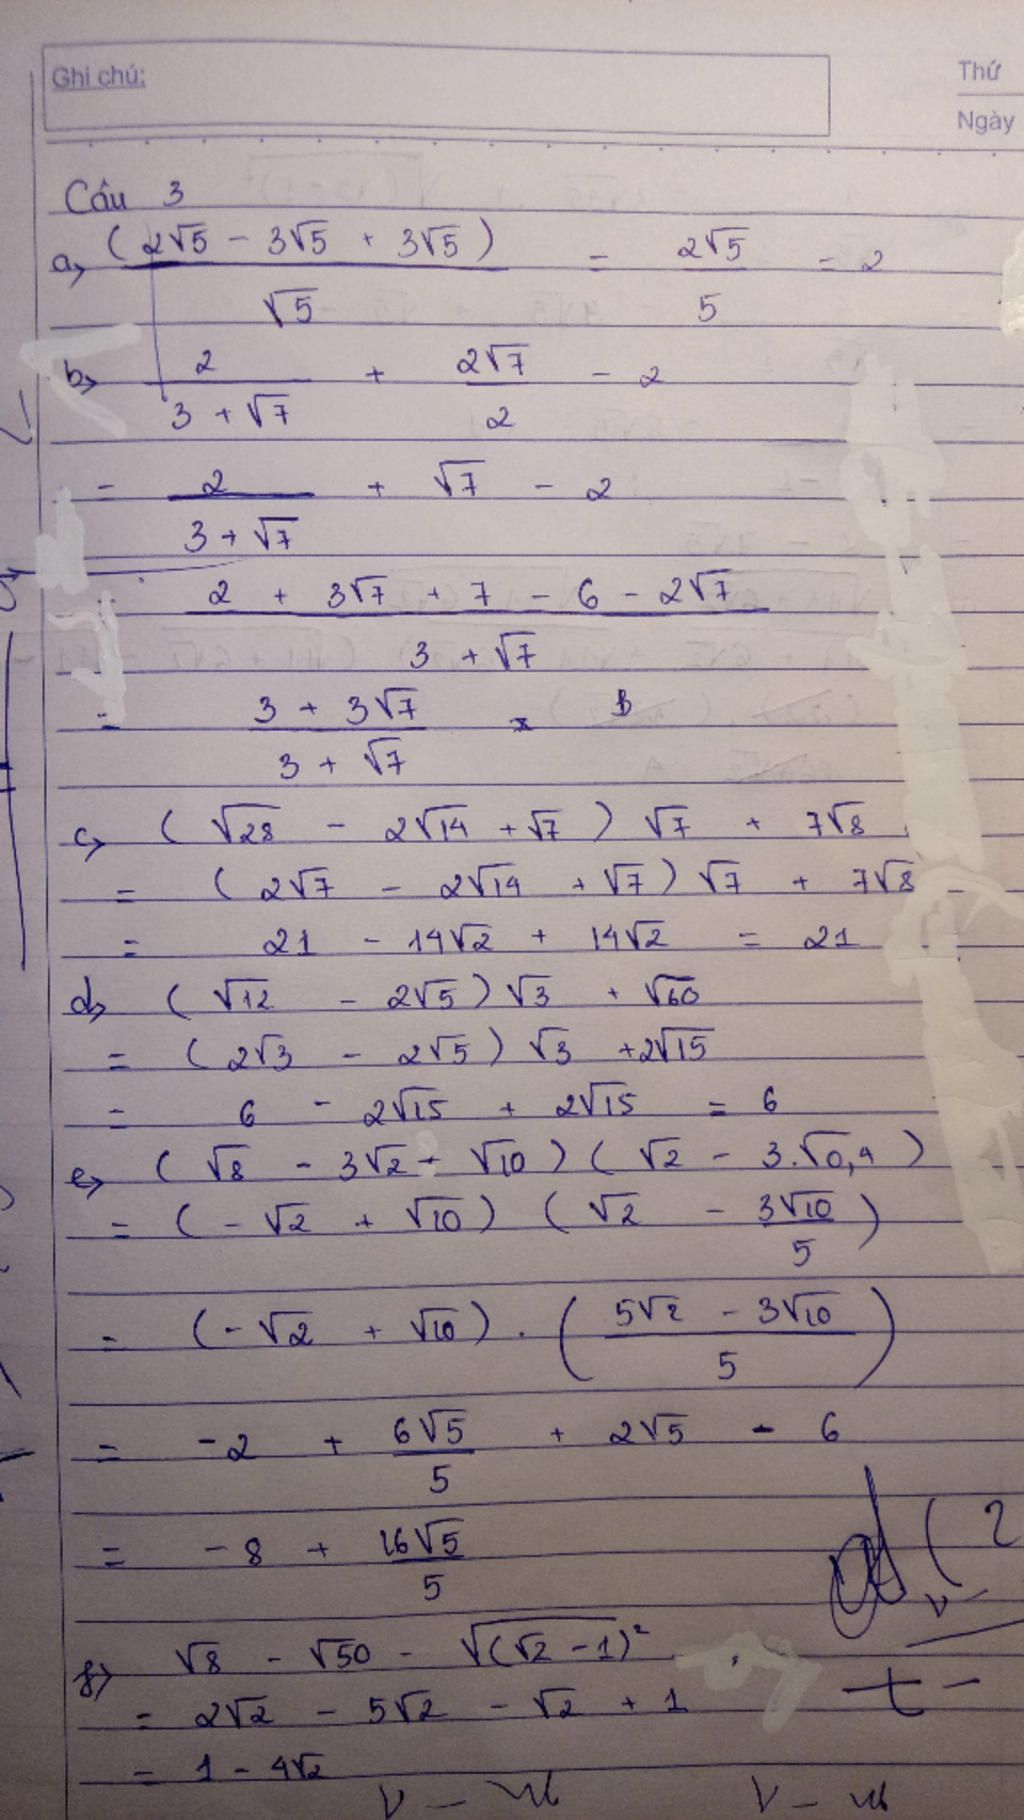 Ghi chú:
Thứ
Ngày
Câu 3
a, (2√5 - 3√5 + 3√5) / √5 = 2√5 / 5 = 2
b, 2 / (3 + √7) + 2√7 / 2 - 2
= 2 / (3 + √7) + √7 - 2
= (2 + 3√7 + 7 - 6 - 2√7) / (3 + √7)
= (3 + 3√7) / (3 + √7)
c, (√28 - 2√14 + √7) √7 + 7√8
= (2√7 - 2√14 + √7) √7 + 7√8
= 21 - 14√2 + 14√2 = 21
d, (√12 - 2√5) √3 + √60
= (2√3 - 2√5) √3 + 2√15
= 6 - 2√15 + 2√15 = 6
e, (√8 - 3√2 + √10) (√2 - 3.√0,4)
= (-√2 + √10) (√2 - 3√10 / 5)
= (-√2 + √10) . ((5√2 - 3√10) / 5)
= -2 + 6√5 / 5 + 2√5 - 6
= -8 + 16√5 / 5
f, √8 - √50 - √(√2 - 1)²
= 2√2 - 5√2 - √2 + 1
= 1 - 4√2